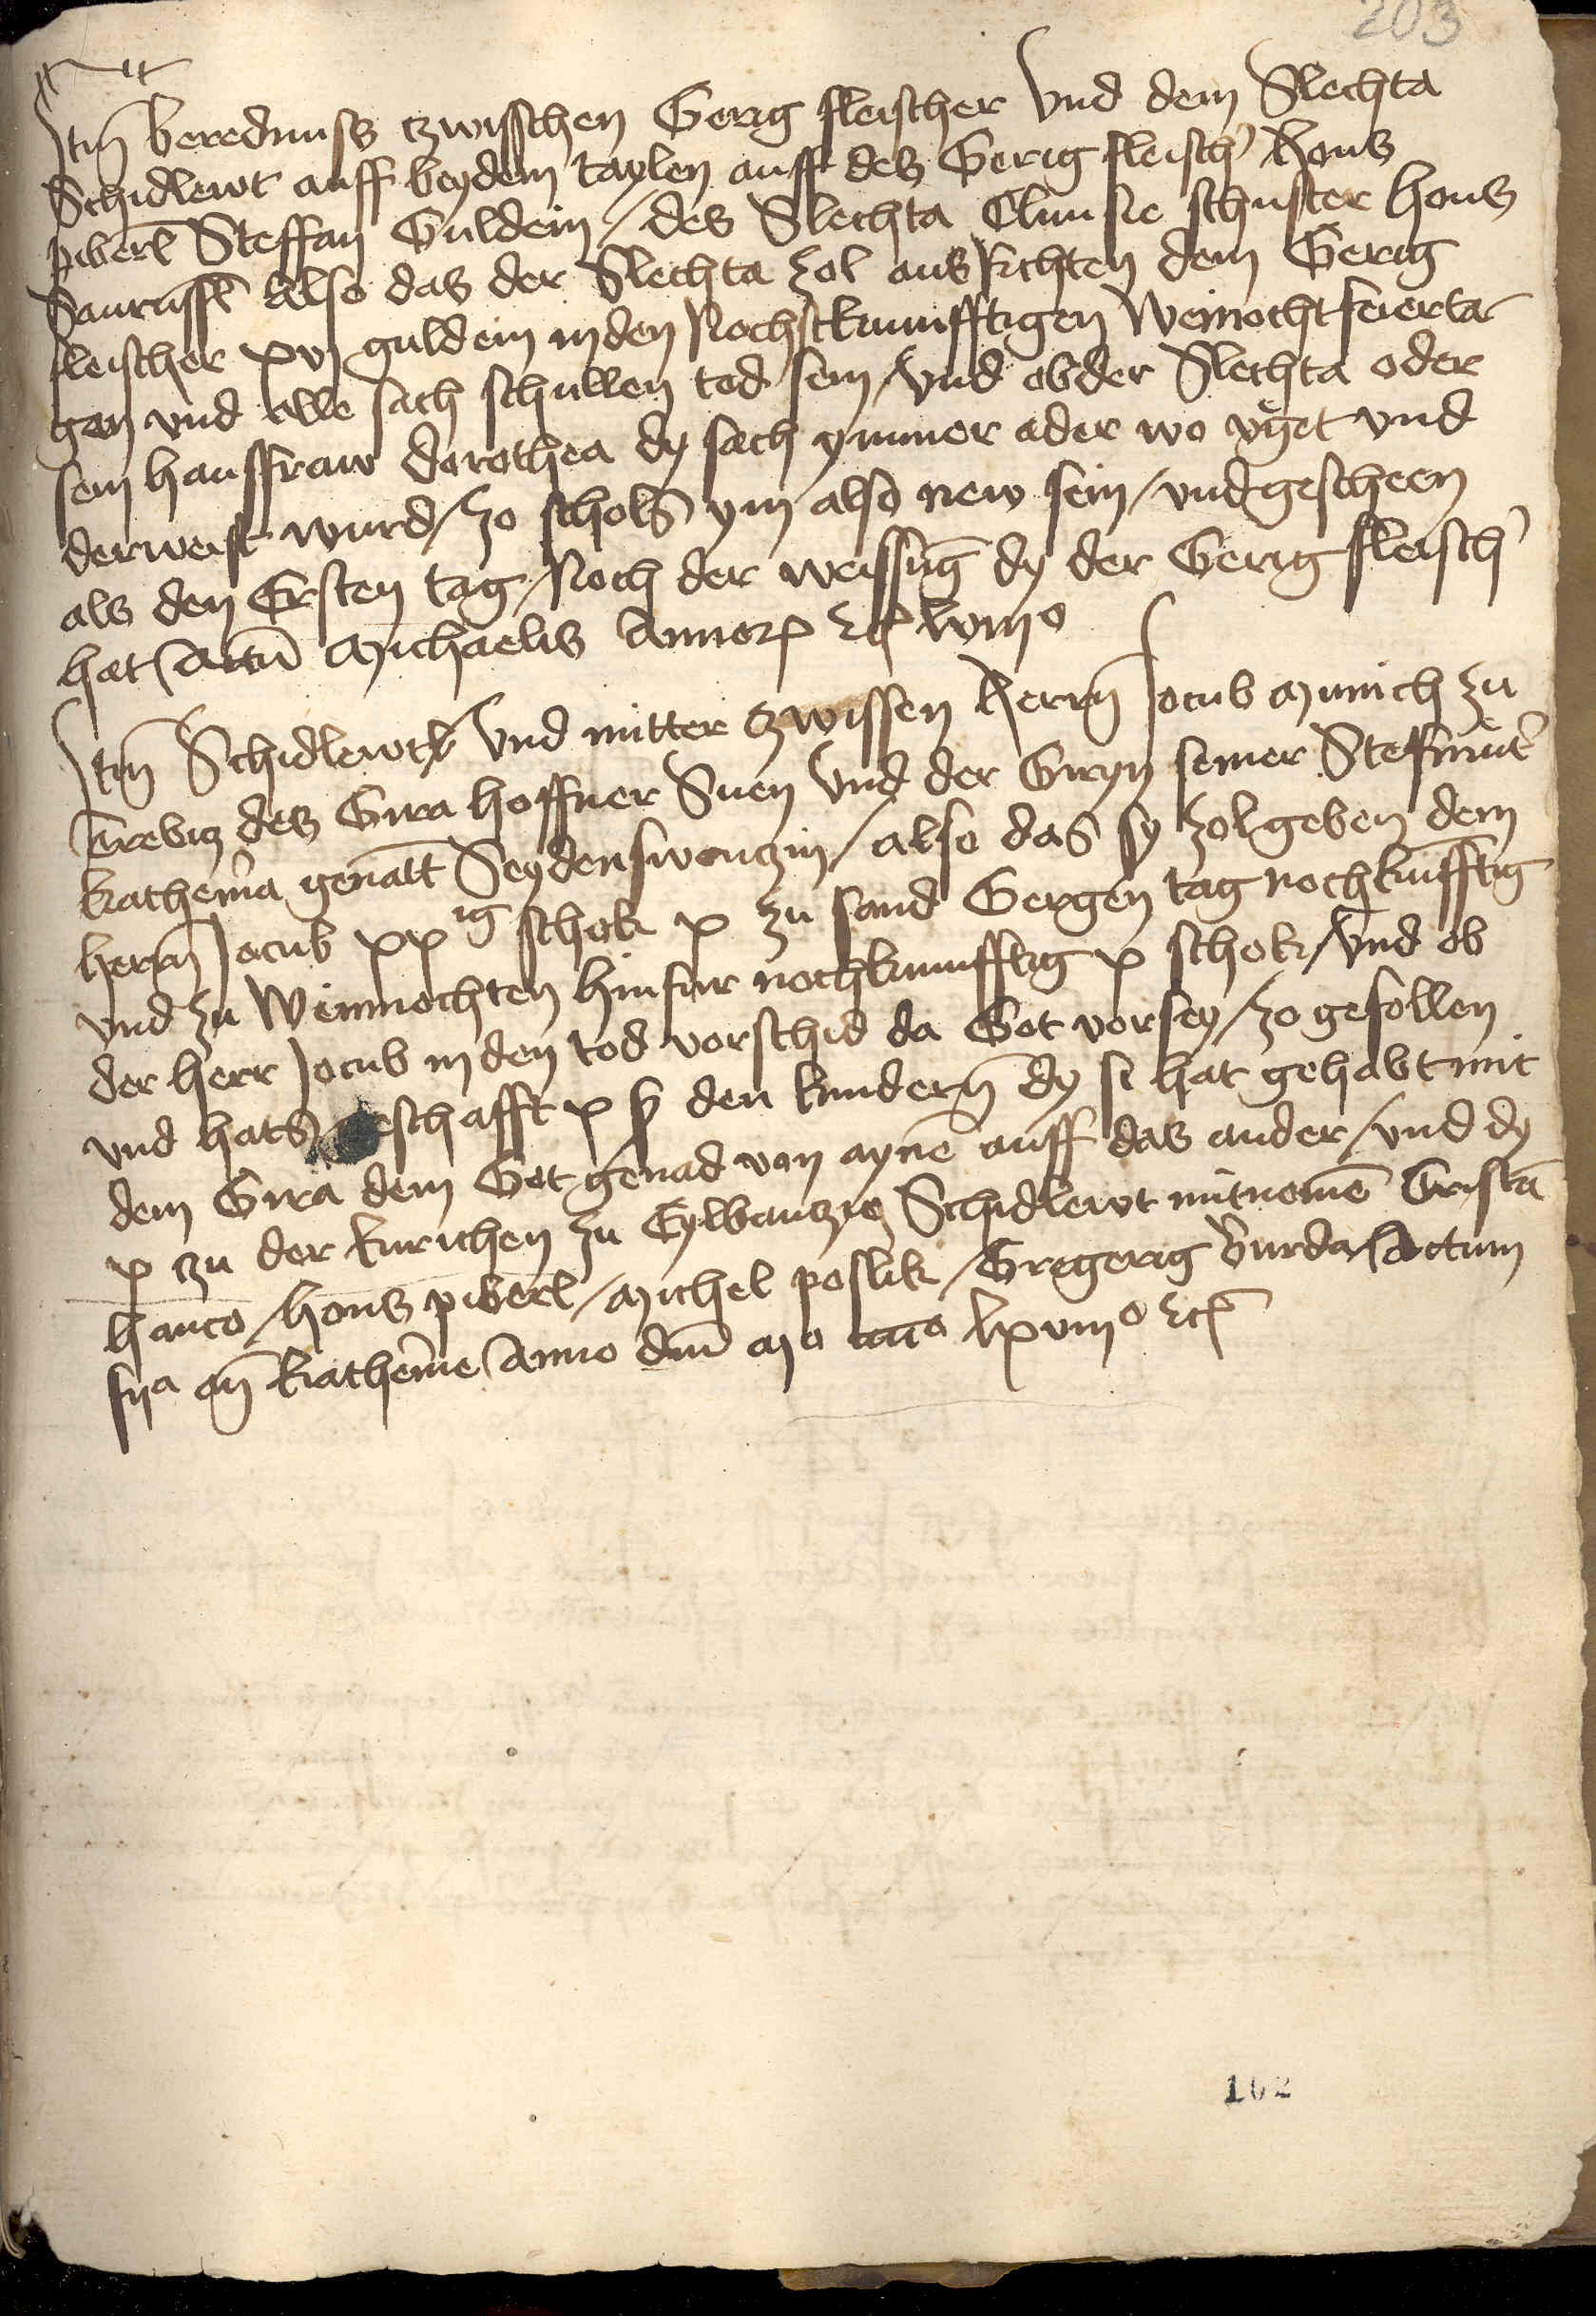 203
Itm̄ berednuss czwisschen Gerig fleischer vnd dem Slechta
Schidlewt auff beydem taylen auff des Gerig fleisch' Hans
piberl Steffan Guldein / des Slechta Clim sie schuster hans
Saurussl also das der Slechta zol aus richten dem Gerig
fleischer xvj guldein in den Nochstkumfftigen Weinocht feierta
gen vnd alle sach schullen tod sein / vnd ob der Slechta oder
sein hausfraw dorothea dy sach ymmer ader wo vget vnd
derweist wurd / zo schols ym also new sein / vnd gescheen
als den Ersten tag / Noch der weissūg dy der Gerig fleisch'
hat Actū Michaelis Annor
Itm̄ Schidlewt vnd mitter czwissen Herrn̄ Jocub Munich zu
Trebig des Gira hoffner Suen vnd der Giryn seiner Stefmut'
katherīa genātt Seydenswanczin / also das sy zol geben dem
herrn̄ Jocub xx ig schok x zu sand Gergen tag nochkūfftig
vnd zu Weinnochten hinfur nochkumfftig x schok / vnd ob
der herr Jocub in den tod vorschid da Got vorsey / zo gefollen
vnd hats geschafft x ß den kindern̄ dy si hat gehabt mit
dem Gira dem Got genad von aynē auff das ander / vnd dy
x zu der kirichen zu Eylbanczicz Schidlewt mitnomē Cristā
hanco / hans piberl / Michel poslik / Gregerig Burda / Actum
fīa an̄ katherīe Anno dm̄ Mo cccco lxviijo etc̄
102